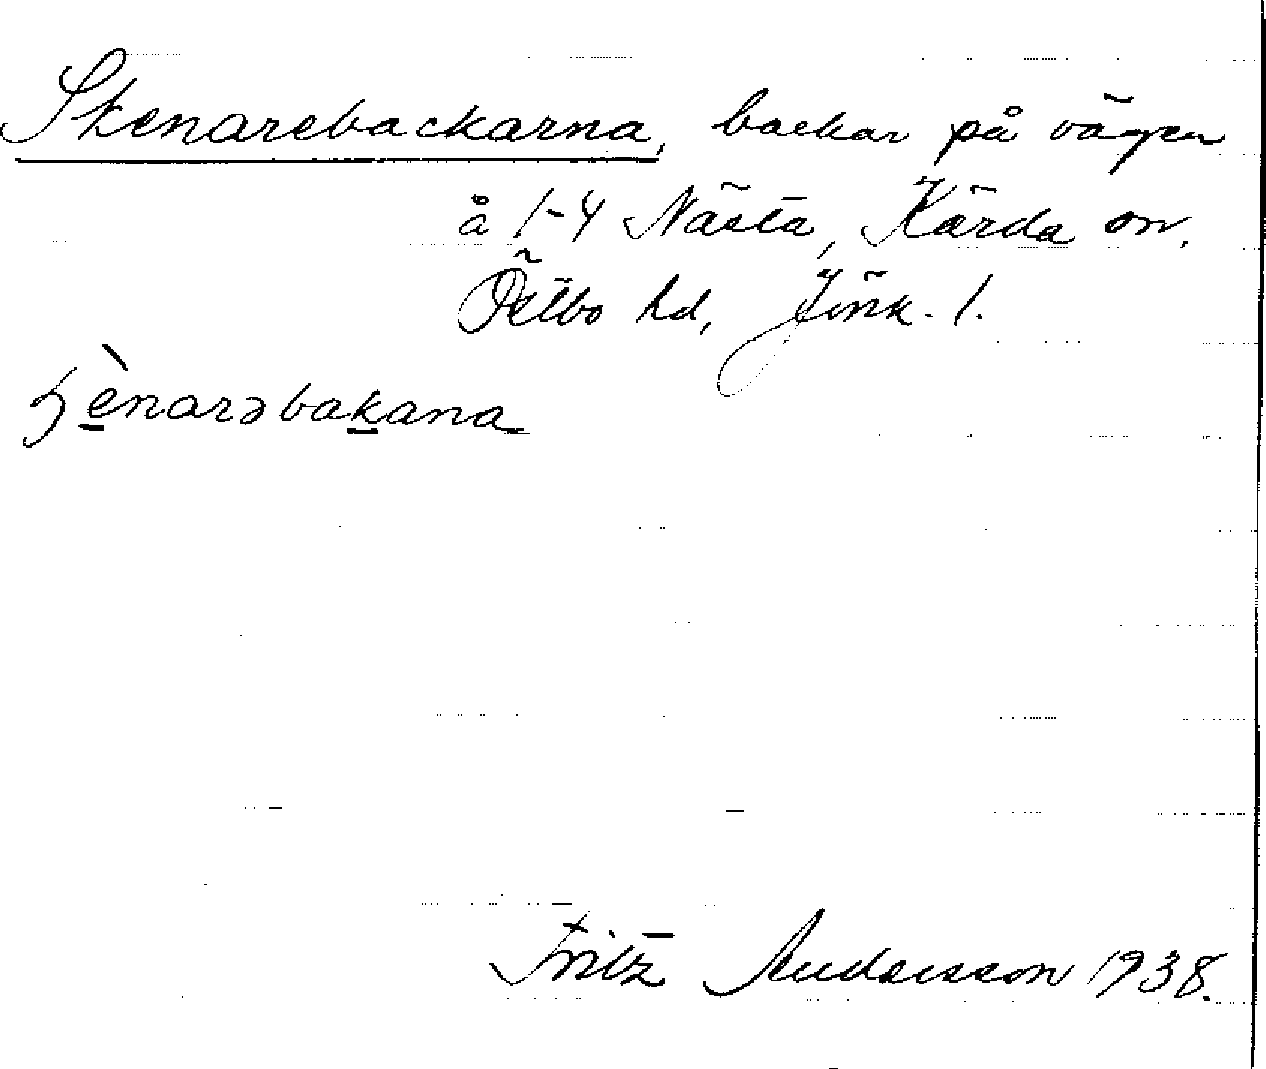 Skenarebackarna, backar på vägen
å 1-4 Nästa, Kärda sn,
Östbo hd, Jönk. l.
ʃènarəbakana
Fritz Andersson 1938.